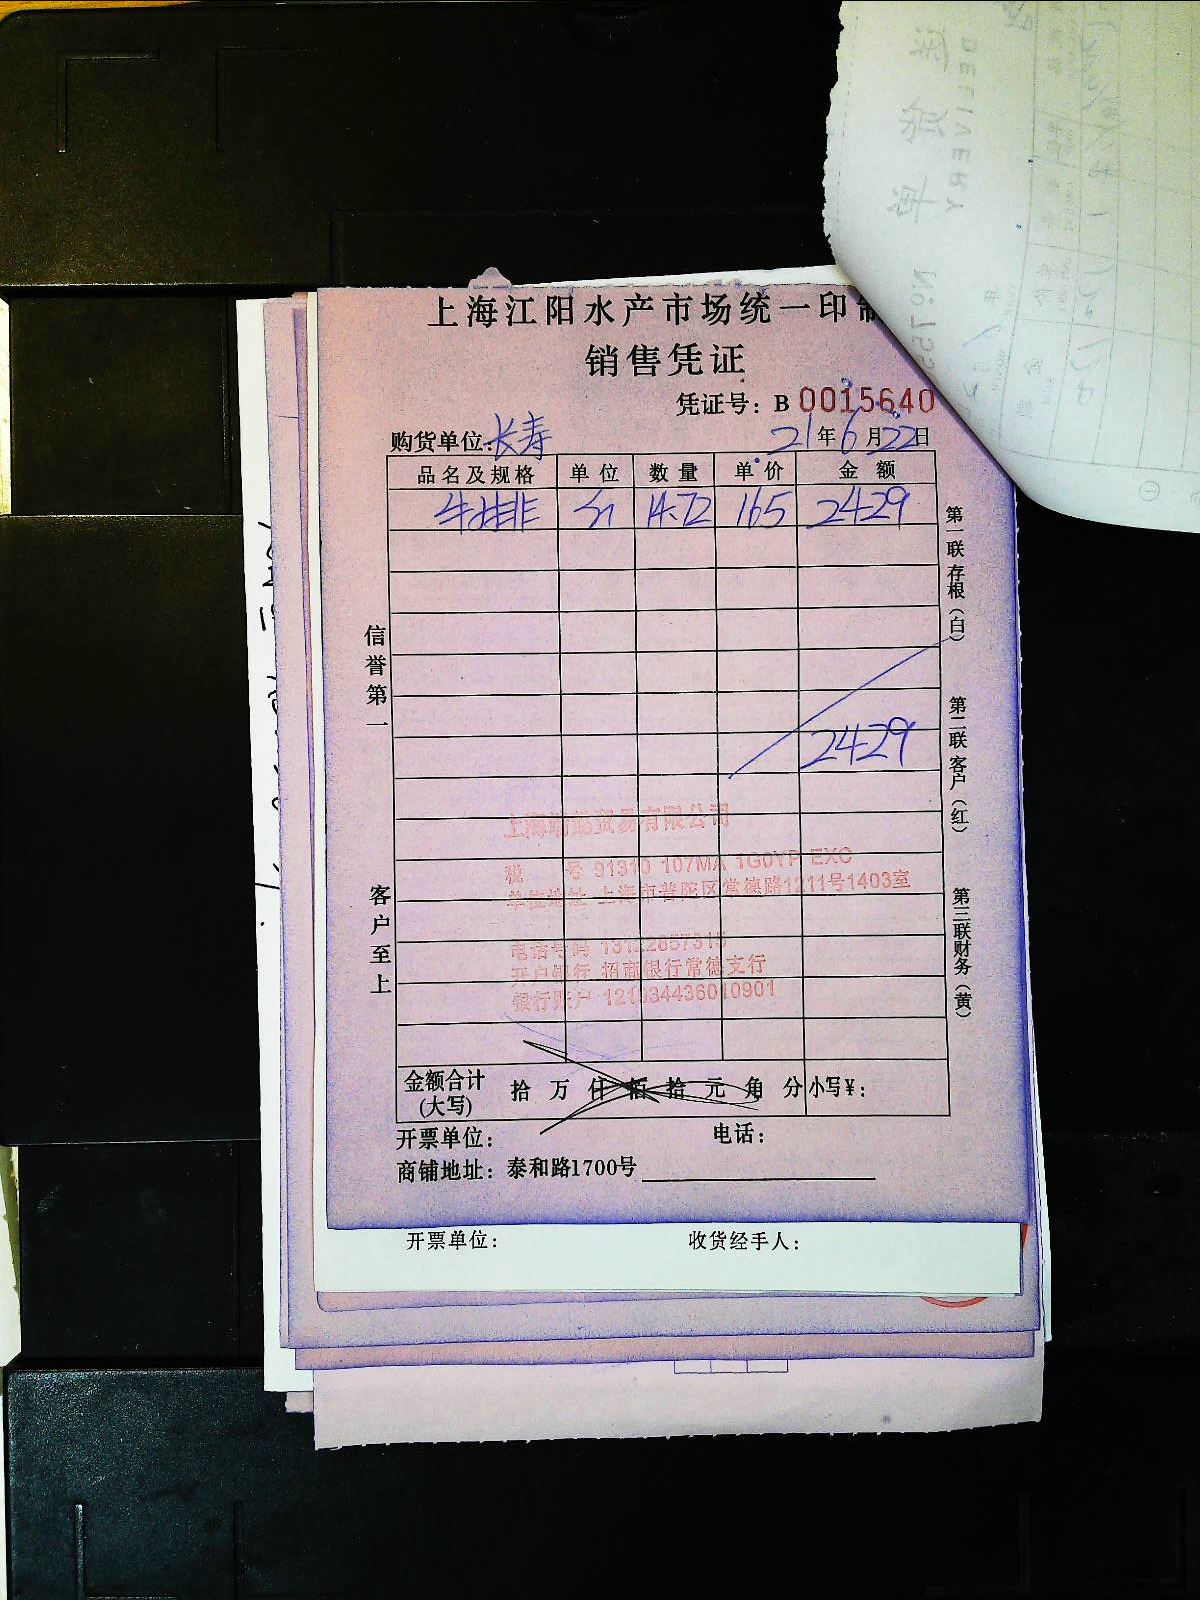 上海江阳水产市场统一印制
销售凭证
凭证号：B 0015640
购货单位：长寿 21年6月22日
品名及规格 单位 数量 单价 金额
牛排 14.72 165 2429
2429
信誉第一
客户至上
第一联存根（白）
第二联客户（红）
第三联财务（黄）
贸易有限公司
税 号 91310 107MA 1G0YP EXC
单位地址 上海市普陀区常德路1211号1403室
电话号码
开户银行 招商银行常德支行
银行账户 121934436010901
金额合计(大写) 拾 万 仟 佰 拾 元 角 分 小写¥：
开票单位： 电话：
商铺地址：泰和路1700号
开票单位： 收货经手人：
DELIVERY